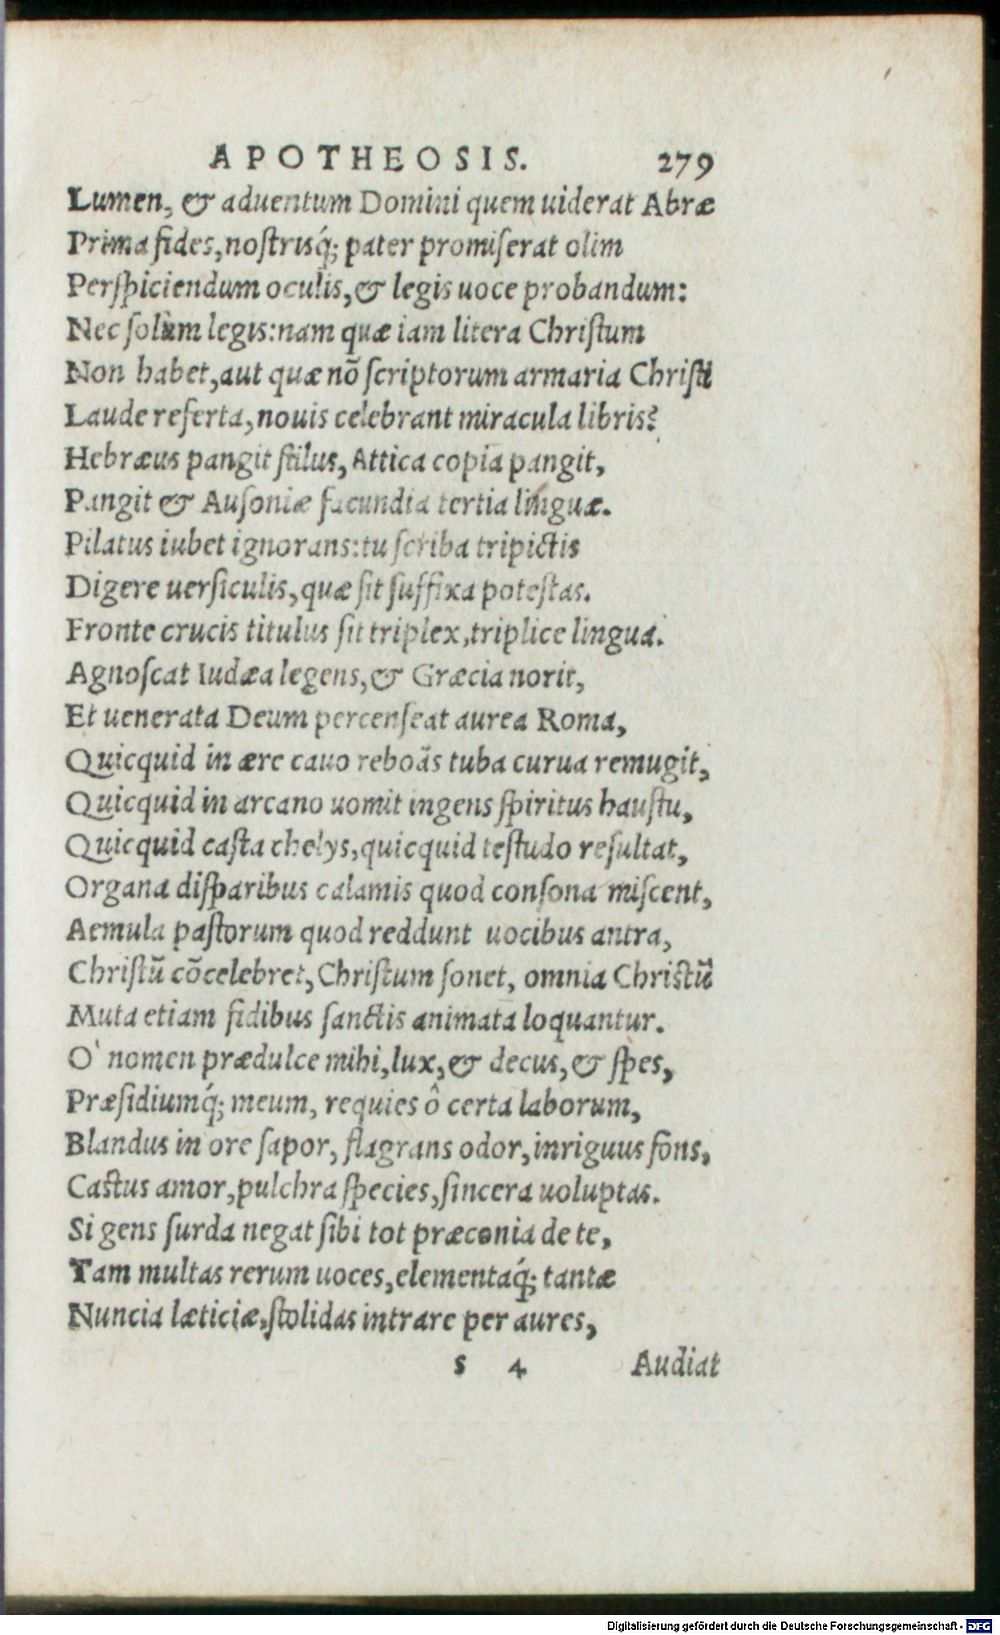 APOTHEOSIS. 279
Lumen, & aduentum Domini quem uiderat Abræ
Prima fides, nostrisq́; pater promiserat olim
Perspiciendum oculis, & legis uoce probandum:
Nec solùm legis: nam quæ iam litera Christum
Non habet, aut quæ nõ scriptorum armaria Christi
Laude referta, nouis celebrant miracula libris?
Hebræus pangit stilus, Attica copia pangit,
Pangit & Ausoniæ facundia tertia linguæ.
Pilatus iubet ignorans: tu scriba tripictis
Digere uersiculis, quæ sit suffixa potestas.
Fronte crucis titulus sit triplex, triplice lingua.
Agnoscat Iudæa legens, & Græcia norit,
Et uenerata Deum percenseat aurea Roma,
Quicquid in ære cauo reboãs tuba curua remugit,
Quicquid in arcano uomit ingens spiritus haustu,
Quicquid casta chelys, quicquid testudo resultat,
Organa disparibus calamis quod consona miscent,
Aemula pastorum quod reddunt uocibus antra,
Christũ cõcelebret, Christum sonet, omnia Christũ
Muta etiam fidibus sanctis animata loquantur.
O' nomen prædulce mihi, lux, & decus, & spes,
Præsidiumq́; meum, requies ô certa laborum,
Blandus in ore sapor, flagrans odor, inriguus fons,
Castus amor, pulchra species, sincera uoluptas.
Si gens surda negat sibi tot præconia de te,
Tam multas rerum uoces, elementaq́; tantæ
Nuncia læticiæ, stolidas intrare per aures,
s 4 Audiat
Digitalisierung gefördert durch die Deutsche Forschungsgemeinschaft - DFG